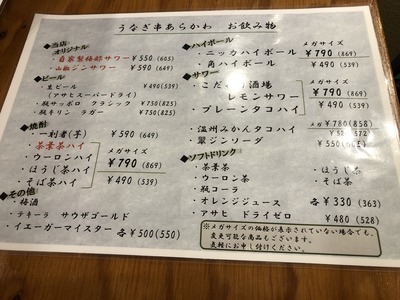 うなぎ串あらかわ お飲み物
◆当店オリジナル
・自家製梅酢サワー ¥550(605)
・山椒ジンサワー ¥590(649)
◆ビール
・生ビール ¥490(539)
(アサヒスーパードライ)
・瓶サッポロ クラシック ¥750(825)
・瓶キリン ラガー ¥750(825)
◆焼酎
・一刻者(芋) ¥590(649)
・茶葉茶ハイ
・ウーロンハイ
・ほうじ茶ハイ
・そば茶ハイ
メガサイズ
¥790(869)
¥490(539)
◆その他
・梅酒
・テキーラ サウザゴールド
・イエーガーマイスター 各¥500(550)
◆ハイボール
・ニッカハイボール
・角ハイボール
メガサイズ
¥790(869)
¥490(539)
◆サワー
・こだわり酒場
レモンサワー
・プレーンタコハイ
メガサイズ
¥790(869)
¥490(539)
・温州みかんタコハイ
メガ¥780(858)
・翠ジンソーダ
◆ソフトドリンク
・茶葉茶
・ほうじ茶
・ウーロン茶
・そば茶
・瓶コーラ
・オレンジジュース 各¥330(363)
・アサヒ ドライゼロ ¥480(528)
※メガサイズの価格が表示されていない場合でも、
変更可能な商品もございます。
気軽にお申し付けください。